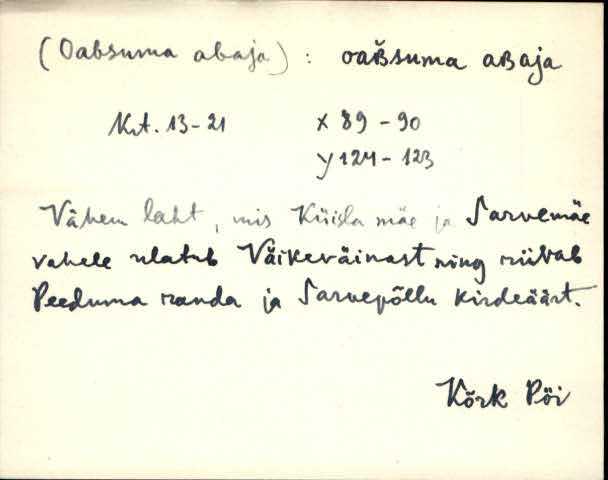 (Oabsuma abaja) : oaʙ̆suma aʙaja
Krt. 13-21 x 89 - 90
y 124 - 123
Vähem laht, mis Küisla mäe ja Sarvemäe
vahele ulatub Väikeväinast ning riivab
Peeduma randa ja Sarvepõllu kirdeäärt.
Kõrk Pöi